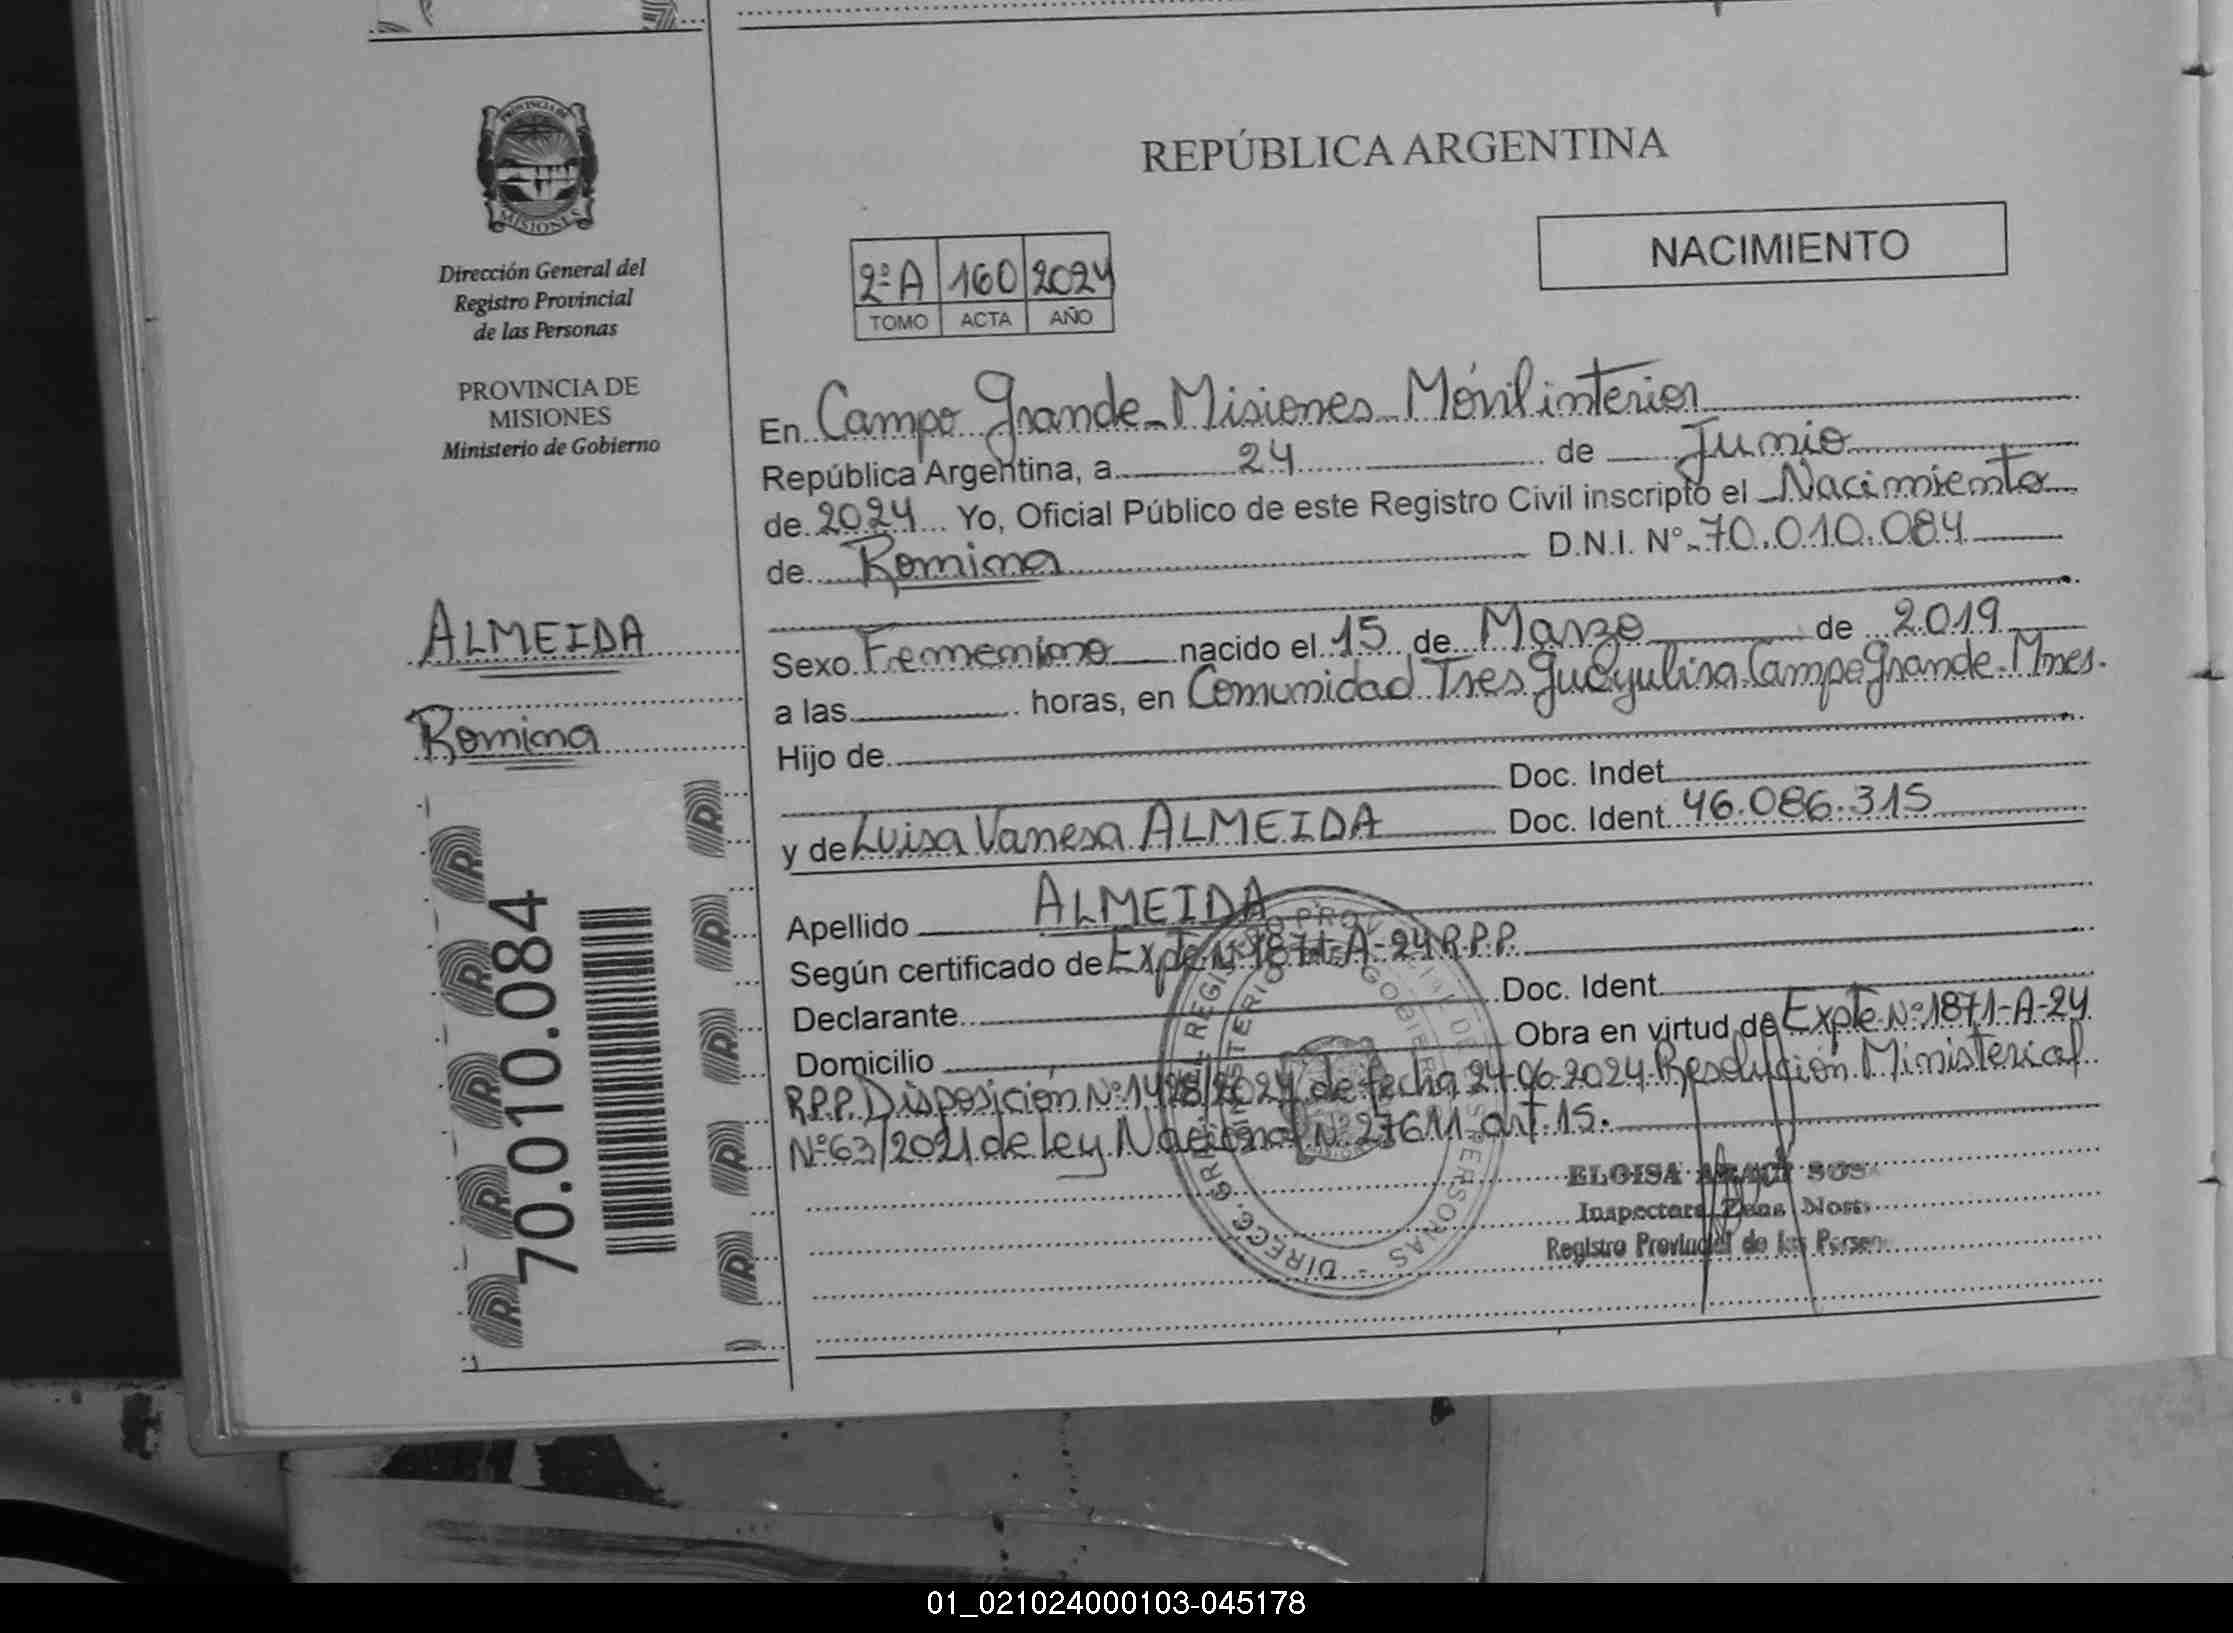 PROVINCIA DE
MISIONES
Dirección General del
Registro Provincial
de las Personas
PROVINCIA DE
MISIONES
Ministerio de Gobierno
ALMEIDA
Romina
70.010.084
REPÚBLICA ARGENTINA
NACIMIENTO
2ºA 160 2024
TOMO ACTA AÑO
En Campo Grande - Misiones Móvil interior
República Argentina, a 24 de Junio
de 2024 Yo, Oficial Público de este Registro Civil inscripto el Nacimiento
de Romina D.N.I. Nº 70.010.084
Sexo Femenino nacido el 15 de Marzo de 2019
a las horas, en Comunidad Tres Campo Grande - Mnes.
Hijo de
Doc. Indet
y de Luisa Vanesa ALMEIDA Doc. Ident 46.086.315
Apellido ALMEIDA
Según certificado de Expte Nº 1871-A-24 R.P.P.
Declarante Doc. Ident.
Domicilio Obra en virtud de Expte Nº 1871-A-24
R.P.P. Disposición Nº 1428/2024 de fecha 24-06-2024 Resolución Ministerial
Nº 63/2021 de Ley Nacional Nº 27611 art. 15.
ELOISA SOSA
Inspectora Zona Norte
Registro Provincial de las Person
01_021024000103-045178